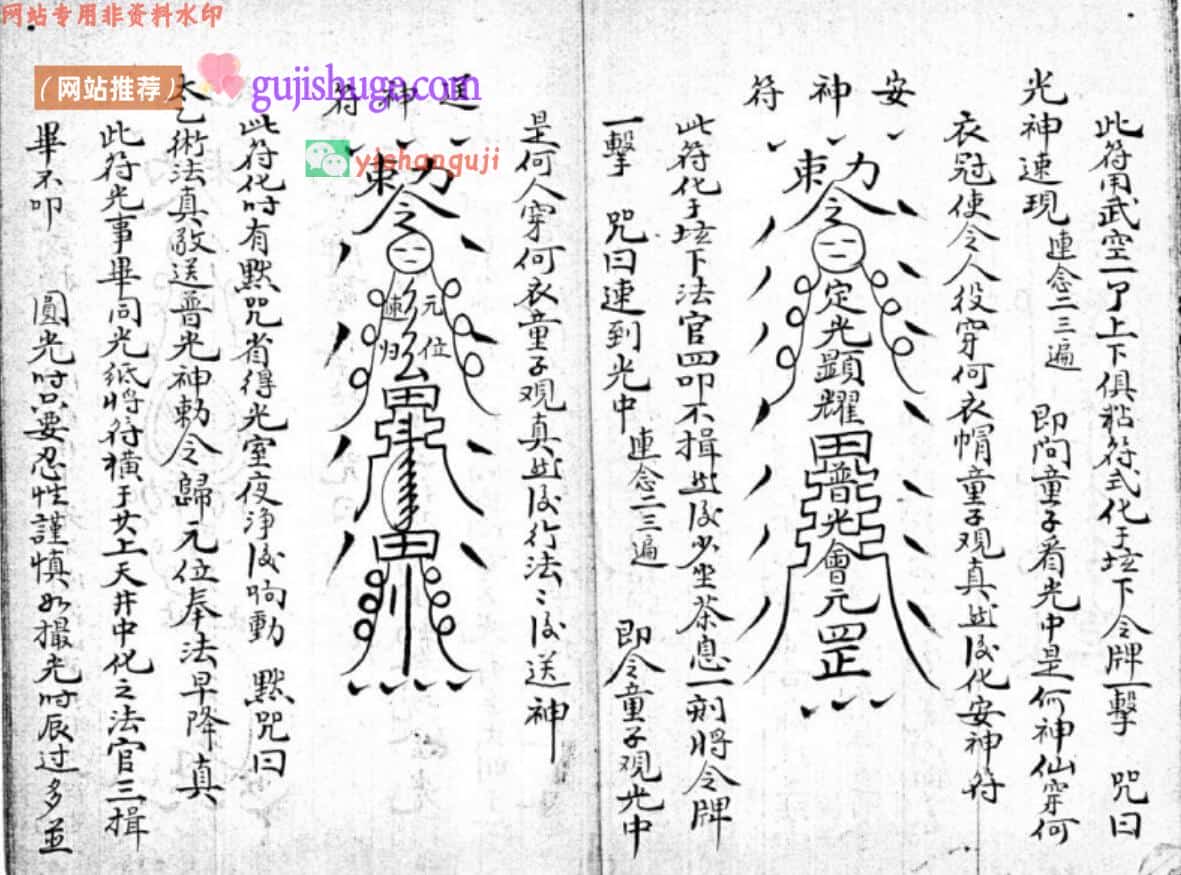 网站专用非资料水印
（网站推荐）
gujishuge.com
yishanguji
此符用武空一了上下俱粘符式化于坛下令牌一擊 咒曰
光神速現 連念二三遍 即问童子看光中是何神仙穿何
衣冠使令人役穿何衣帽童子观真此後化安神符
安神符
勅令
定光顯耀
普光會元罡
此符化于坛下法官四叩不揖此後少坐茶息一刻将令牌
一擊 咒曰速到光中 連念二三遍 即令童子观光中
是何人穿何衣童子观真此後行法〻後送神
送神符
勅令
元位
归
此符化时有默咒省得光室夜净後响動 默咒曰
太乙術法真敬送普光神勅令歸元位奉法早降真
此符光事畢同光纸将符横于廿上天井中化之法官三揖
畢不叩 圓光时只要忍性謹慎如撮光时辰过多並